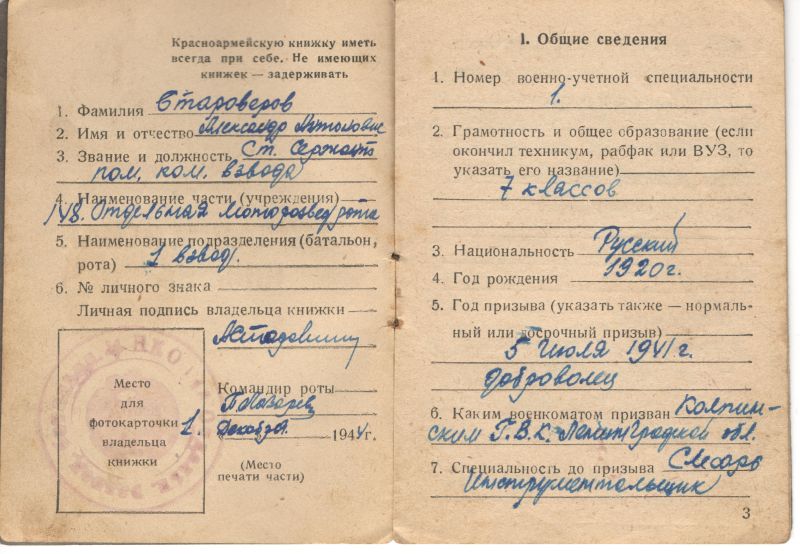 Красноармейскую книжку иметь
всегда при себе. Не имеющих
книжек — задерживать
1. Фамилия Староверов
2. Имя и отчество Александр
3. Звание и должность Ст. Сержант
пом. ком. взвода
4. Наименование части (учреждения)
148. Отдельная Моторазвед рота
5. Наименование подразделения (батальон,
рота) 1 взвод.
6. № личного знака
Личная подпись владельца книжки
Место
для
фотокарточки
владельца
книжки
Командир роты
1944г.
(Место
печати части)
НКО
1. Общие сведения
1. Номер военно-учетной специальности
1.
2. Грамотность и общее образование (если
окончил техникум, рабфак или ВУЗ, то
указать его название)
7 классов
3. Национальность Русский
4. Год рождения 1920г.
5. Год призыва (указать также — нормаль-
ный или досрочный призыв)
5 Июля 1941г.
доброволец
6. Каким военкоматом призван Колпин-
ским Г.В.К. Ленинградской обл.
7. Специальность до призыва Слесарь
Инструментальщик
3